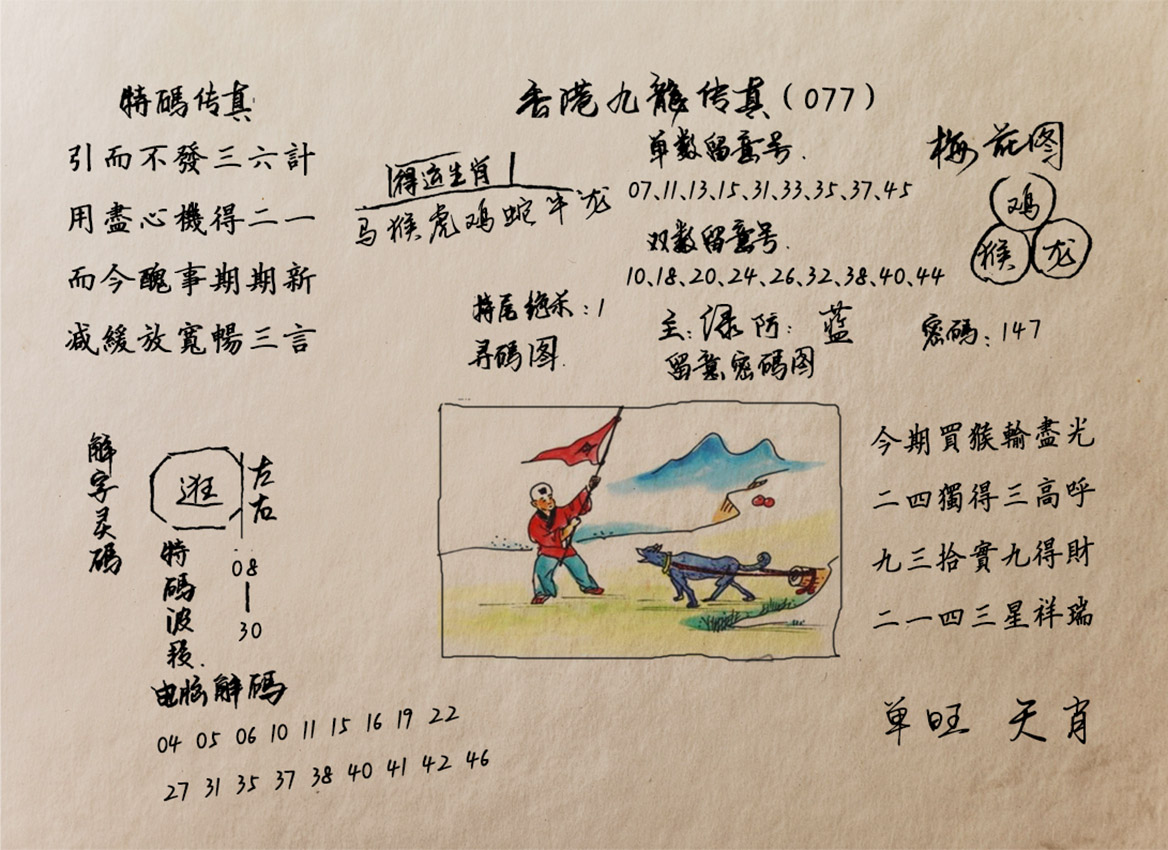 香港九龍传真（077）
特碼传真
引而不發三六計
用盡心機得二一
而今醜事期期新
减緩放寬暢三言
得运生肖
马猴虎鸡蛇牛龙
单数留意号.
07、11、13、15、31、33、35、37、45
双数留意号.
10、18、20、24、26、32、38、40、44
梅花图
鸡
猴 龙
特尾绝杀：1
寻碼图.
主：绿 防：蓝
留意密碼图
密碼：147
解字灵碼
逛
左右
特碼波段.
08
30
今期買猴輸盡光
二四獨得三高呼
九三拾實九得財
二一四三星祥瑞
电脑解碼
04 05 06 10 11 15 16 19 22
27 31 35 37 38 40 41 42 46
单旺 天肖